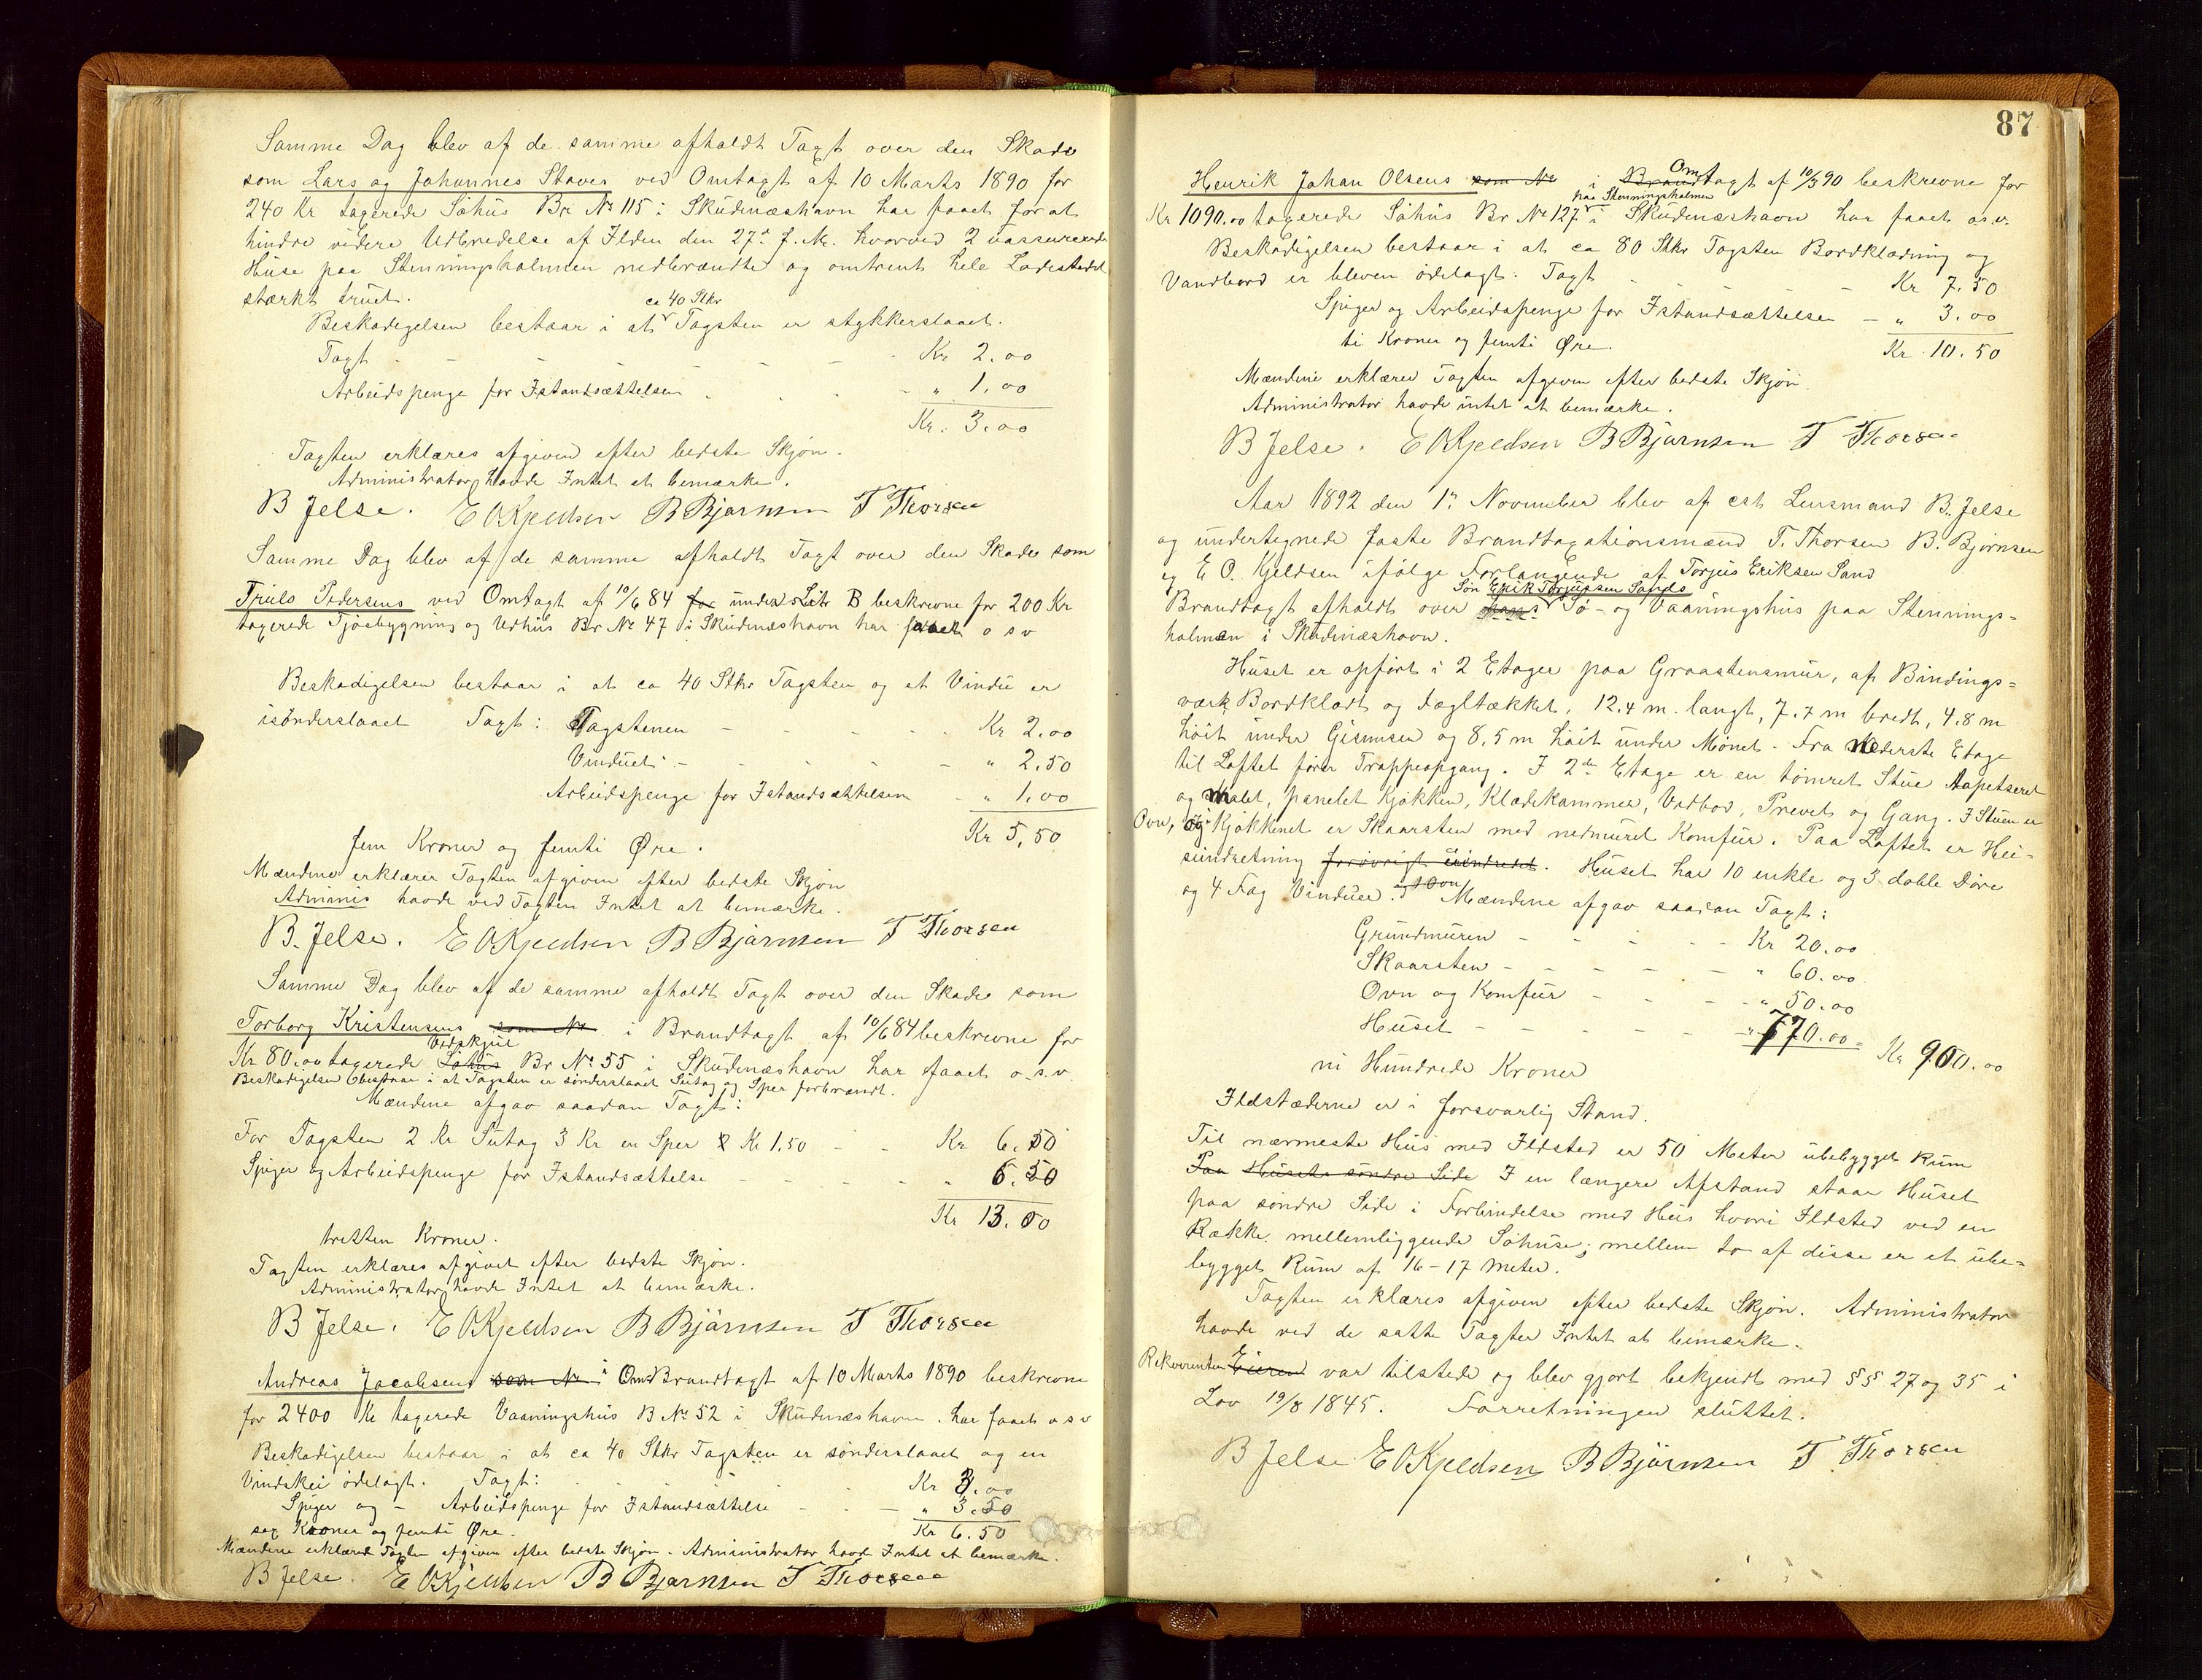 Samme Dag blev af de samme afholdt Taxt over den Skade
som Lars og Johannes Staves ved Omtaxt af 10 Marts 1890 for
240 Kr taxerede Söhus Br No 115 i Skudesnæshavn har faaet for at
hindre videre Udbredelse af Ilden den 27de f. M. hvorved 2 uassurerede
Huse paa Stenningsholmen nedbrændte og omtrent hele Ladestedet
stærkt truet.
ca 40 Stkr
Beskadigelsen bestaar i at Tagsten er stykkerslaaet.
Taxt - - - - Kr 2.00
Arbeidspenge for Istandsættelsen - - - " 1.00
Kr. 3.00
Taxten erklæres afgiven efter bedste Skjøn.
Administrator havde Intet at bemærke.
B Jelse. E O Kjeldsen B Bjørnsen T Thorsen
Samme Dag blev af de samme afholdt Taxt over den Skade som
Truls Pedersens ved Omtaxt af 10/6 84 for under Litr B beskrevne for 200 Kr
taxerede Fjösbygning og Udhus Br No 47 i Skudesnæshavn har faaet o s v
Beskadigelsen bestaar i at ca 40 Stkr Tagsten og et Vindu er
isönderslaaet Taxt: Tagstenen - - - - Kr 2.00
Vinduet - - - - " 2.50
Arbeidspenge for Istandsættelsen - " 1.00
Kr 5,50
fem Kroner og femti Øre.
Mændene erklærer Taxten afgiven efter bedste Skjøn
Adminis havde ved Taxten Intet at bemærke.
B. Jelse. E O Kjeldsen B Bjørnsen T Thorsen
Samme Dag blev af de samme afholdt Taxt over den Skade som
Torborg Kristensens som No i Brandtaxt af 10/6 84 beskrevne for
Vedskjul
Kr 80.00 taxerede Söhus Br No 55 i Skudesnæshavn har faaet o.s.v.
Beskadigelsen bestaar i at Tagsten er sönderslaaet Sutag og Sper forbrændt.
Mændene afgav saadan Taxt:
For Tagsten 2 Kr Sutag 3 Kr en Sper Kr 1.50 - - Kr 6.50
Spiger og Arbeidspenge for Istandsættelse - - - - " 6.50
Kr 13.00
tretten Kroner.
Taxten erklæres afgivet efter bedste Skjøn.
Administrator havde Intet at bemærke.
B Jelse. E O Kjeldsen B Bjørnsen T Thorsen
Andreas Jacobsens som No i Om Brandtaxt af 10 Marts 1890 beskrevne
for 2400 Kr taxerede Vaaningshus B No 52 i Skudesnæshavn har faaet o s v
Beskadigelsen bestaar i at ca 40 Stkr Tagsten er sönderslaaet og en
Vindskei ödelagt. Taxt: - - - Kr 3.00
Spiger og - Arbeidspenge for Istandsættelse - - - " 3.50
sex Kroner og femti Øre. Kr 6.50
Mændene erklærede Taxten afgiven efter bedste Skjøn. Administrator havde Intet at bemærke.
B Jelse. E O Kjeldsen B Bjørnsen T Thorsen
87
Henrik Johan Olsens som No i Brand Omtaxt af 10/3 90 beskrevne for
paa Stenningsholmen
Kr 1090.00 taxerede Söhus Br No 127 i Skudesnæshavn har faaet o.s.v.
Beskadigelsen bestaar i at ca 80 Stkr Tagsten Bordklædning og
Vandbord er bleven ödelagt. Taxt - - - - Kr 7.50
Spiger og Arbeidspenge for Istandsættelsen - " 3.00
ti Kroner og femti Øre. Kr. 10.50
Mændene erklærer Taxten afgiven efter bedste Skjøn.
Administrator havde intet at bemærke.
B Jelse. E O Kjeldsen B Bjørnsen T Thorsen
Aar 1892 den 1ste November blev af cst Lensmand B. Jelse
og undertegnede faste Brandtaxationsmænd T. Thorsen B. Bjørnsen
og E O. Kjeldsen ifølge Forlangende af Torjus Eriksen Sand
Søn Erik Torjussen Sands
Brandtaxt afholdt over hans Sö- og Vaaningshus paa Stennings=
holmen i Skudesnæshavn.
Huset er opfört i 2 Etager paa Graastensmur, af Bindings=
værk Bordklædt og tagltækket, 12.4 m. langt, 7.7 m bredt, 4.8 m
höit under Gisimsen og 8.5 m höit under Mönet. Fra nederste Etage
til Loftet förer Trappeopgang. I 2den Etage er en tömret Stue tapetseret
og malet, panelet Kjökken, Klædekammer, Vedbod, Privet og Gang. I Stuen er
Ovn, og i Kjökkenet er Skaarsten med nedmuret Komfur. Paa Loftet er Hei=
seindretning forövrigt uindredet. Huset har 10 enkle og 3 doble Döre
og 4 Fag Vinduer. og 1 Ovn Mændene afgav saadan Taxt:
Grundmuren - - - - Kr 20.00
Skaarsten - - - - " 60.00
Ovn og Komfur - - - " 50.00
Huset - - - - " 770.00 = Kr 900.00
ni Hundrede Kroner
Ildstæderne er i forsvarlig Stand.
Til nærmeste Hus med Ildsted er 50 Meter ubebygget Rum
Paa Husets söndre Side I en længere Afstand staar Huset
paa söndre Side i Forbindelse med Hus hvori Ildsted ved en
Række mellemliggende Söhuse; mellem to af disse er et ube=
bygget Rum af 16-17 Meter.
Taxten erklæres afgiven efter bedste Skjøn. Administrator
havde ved de satte Taxter Intet at bemærke.
Rekvirenten Eieren var tilstede og blev gjort bekjendt med §§ 27 og 35 i
Lov 19/8 1845. Forretningen sluttet.
B Jelse E O Kjeldsen B Bjørnsen T Thorsen